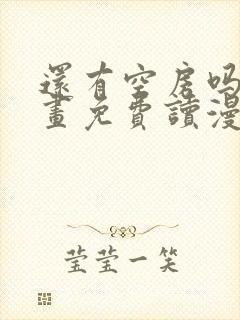 還有空房吗
畫免費讀漫
莹莹一笑